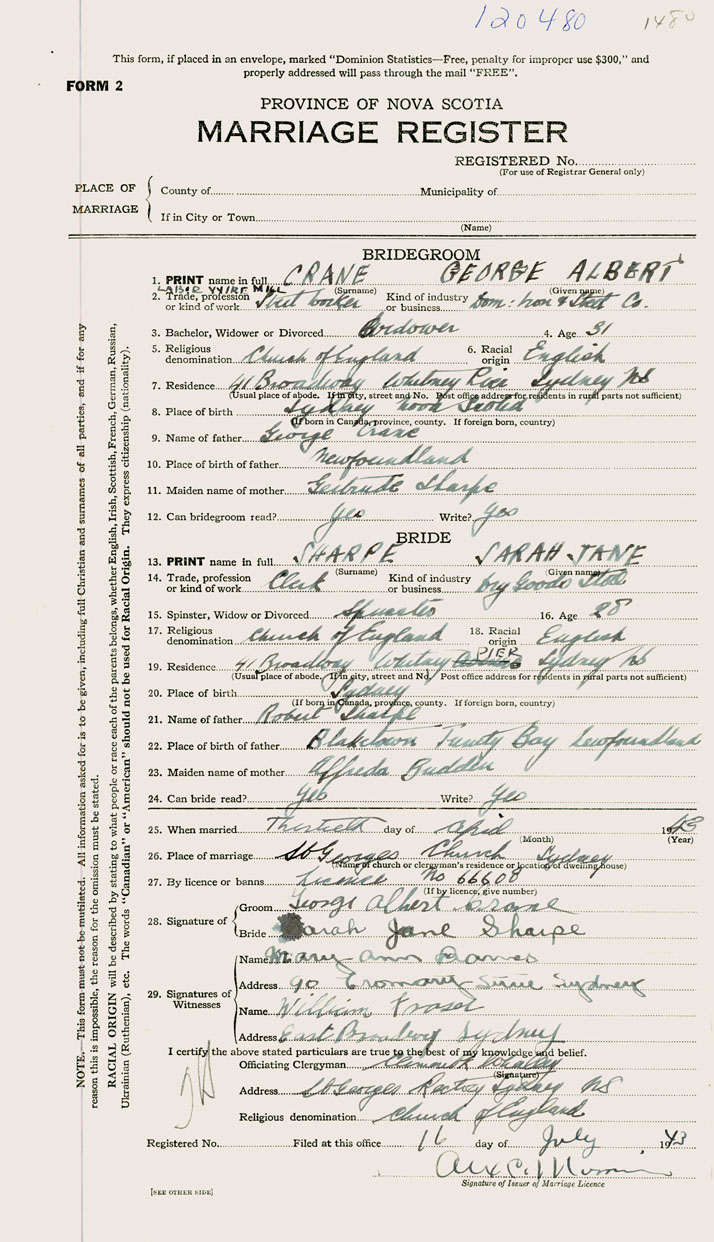 120480 1480
This form, if placed in an envelope, marked "Dominion Statistics—Free, penalty for improper use $300," and
properly addressed will pass through the mail "FREE".
FORM 2
PROVINCE OF NOVA SCOTIA
MARRIAGE REGISTER
REGISTERED No.
(For use of Registrar General only)
PLACE OF MARRIAGE
County of Municipality of
If in City or Town
(Name)
BRIDEGROOM
1. PRINT name in full CRANE GEORGE ALBERT
(Surname) (Given name)
LABOR WIRE MILL
2. Trade, profession or kind of work Steel worker Kind of industry or business Dom: Iron & Steel Co.
3. Bachelor, Widower or Divorced Widower 4. Age 31
5. Religious denomination Church of England 6. Racial origin English
7. Residence 41 Broadway Whitney Pier Sydney NS
(Usual place of abode. If in city, street and No. Post office address for residents in rural parts not sufficient)
8. Place of birth Sydney Nova Scotia
(If born in Canada, province, county. If foreign born, country)
9. Name of father George Crane
10. Place of birth of father Newfoundland
11. Maiden name of mother Gertrude Sharpe
12. Can bridegroom read? Yes Write? Yes
BRIDE
13. PRINT name in full SHARPE SARAH JANE
(Surname) (Given name)
14. Trade, profession or kind of work Clerk Kind of industry or business Dry Goods Store
15. Spinster, Widow or Divorced Spinster 16. Age 28
17. Religious denomination Church of England 18. Racial origin English
19. Residence 41 Broadway Whitney PIER Sydney NS
(Usual place of abode. If in city, street and No. Post office address for residents in rural parts not sufficient)
20. Place of birth Sydney
(If born in Canada, province, county. If foreign born, country)
21. Name of father Robert Sharpe
22. Place of birth of father Blaketown Trinity Bay Newfoundland
23. Maiden name of mother Alfreda Budden
24. Can bride read? Yes Write? Yes
25. When married Thirtieth day of April 1943
(Month) (Year)
26. Place of marriage St Georges Church Sydney
(Name of church or clergyman's residence or location of dwelling house)
27. By licence or banns Licence No 66608
(If by licence, give number)
28. Signature of
Groom George Albert Crane
Bride Sarah Jane Sharpe
29. Signatures of Witnesses
Name Mary Ann
Address 90 Sydney
Name William Fraser
Address East Broadway Sydney
I certify the above stated particulars are true to the best of my knowledge and belief.
Officiating Clergyman Whalley
(Signature)
Address St Georges Rectory Sydney NS
Religious denomination Church of England
Registered No. Filed at this office 16 day of July 1943
Signature of Issuer of Marriage Licence
[SEE OTHER SIDE]
NOTE.—This form must not be mutilated. All information asked for is to be given, including full Christian and surnames of all parties, and if for any
reason this is impossible, the reason for the omission must be stated.
RACIAL ORIGIN will be described by stating to what people or race each of the parents belongs, whether English, Irish, Scottish, French, German, Russian,
Ukrainian (Ruthenian), etc. The words "Canadian" or "American" should not be used for Racial Origin. They express citizenship (nationality).